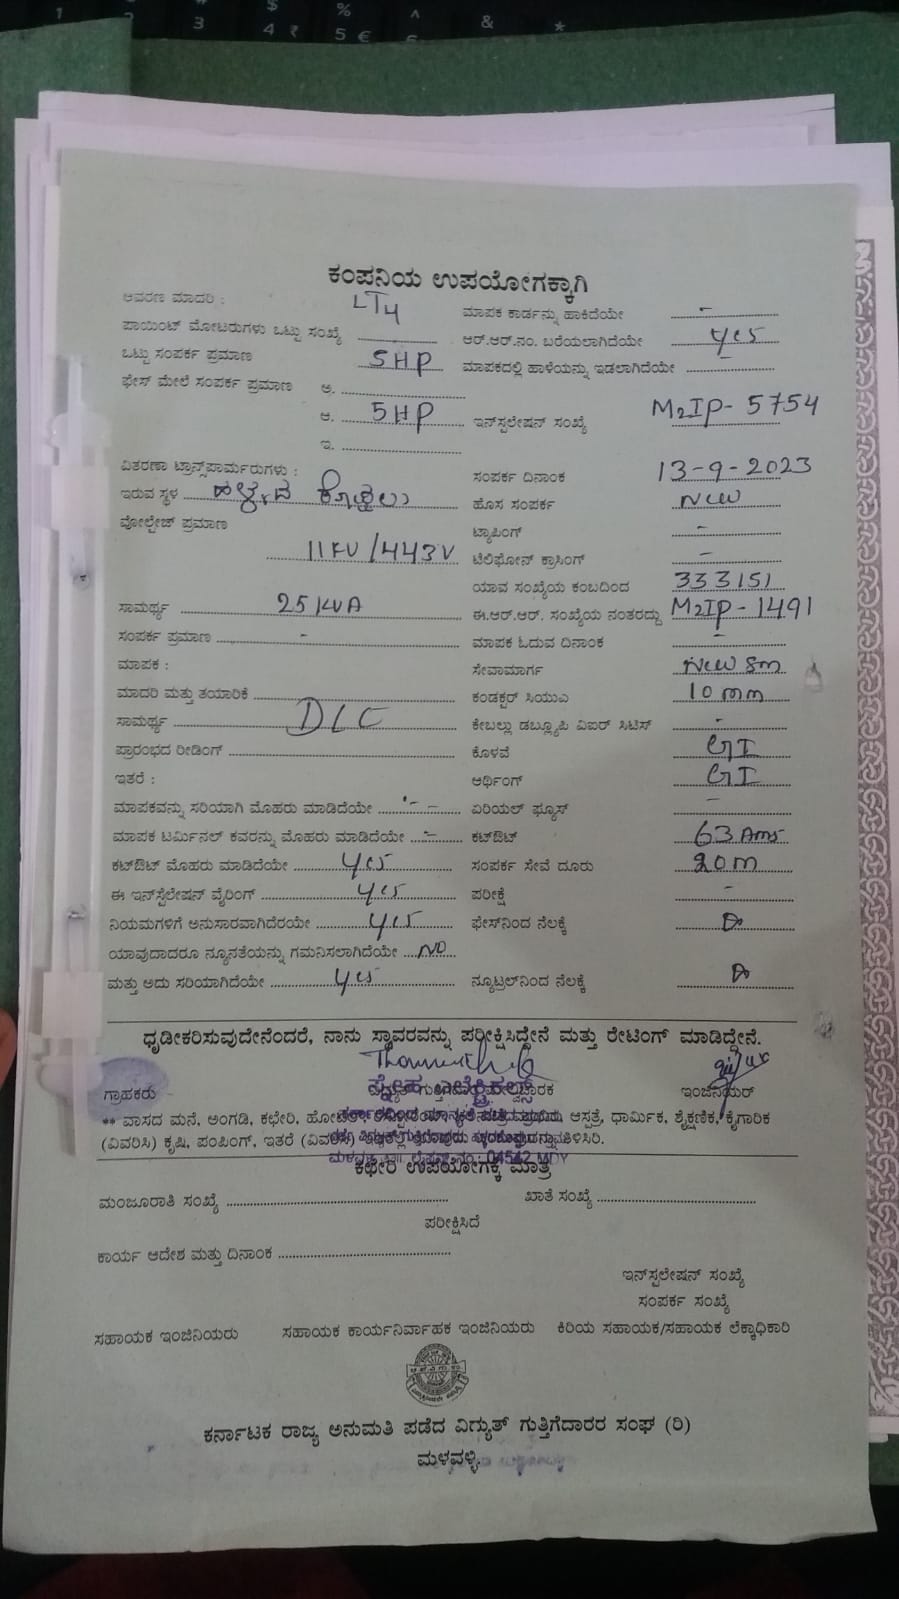 ಕಂಪನಿಯ ಉಪಯೋಗಕ್ಕಾಗಿ
ಆವರಣ ಮಾದರಿ : LT4 ಮಾಪಕ ಕಾರ್ಡನ್ನು ಹಾಕಿದೆಯೇ -
ಪಾಯಿಂಟ್ ಮೋಟರುಗಳು ಒಟ್ಟು ಸಂಖ್ಯೆ ಆರ್.ಆರ್.ನಂ. ಬರೆಯಲಾಗಿದೆಯೇ yes
ಒಟ್ಟು ಸಂಪರ್ಕ ಪ್ರಮಾಣ 5HP ಮಾಪಕದಲ್ಲಿ ಹಾಳೆಯನ್ನು ಇಡಲಾಗಿದೆಯೇ -
ಫೇಸ್ ಮೇಲೆ ಸಂಪರ್ಕ ಪ್ರಮಾಣ ಅ.
ಆ. 5HP ಇನ್‌ಸ್ಟಲೇಷನ್ ಸಂಖ್ಯೆ M2IP- 5754
ಇ.
ವಿತರಣಾ ಟ್ರಾನ್ಸ್‌ಪಾರ್ಮರುಗಳು : ಸಂಪರ್ಕ ದಿನಾಂಕ 13-9-2023
ಇರುವ ಸ್ಥಳ ಹೊಸ ಸಂಪರ್ಕ New
ವೋಲ್ಟೇಜ್ ಪ್ರಮಾಣ ಟ್ಯಾಪಿಂಗ್ -
11KV/443V ಟೆಲಿಫೋನ್ ಕ್ರಾಸಿಂಗ್ -
ಯಾವ ಸಂಖ್ಯೆಯ ಕಂಬದಿಂದ 333151
ಸಾಮರ್ಥ್ಯ 25KVA ಈ.ಆರ್.ಆರ್. ಸಂಖ್ಯೆಯ ನಂತರದ್ದು M2IP-1491
ಸಂಪರ್ಕ ಪ್ರಮಾಣ - ಮಾಪಕ ಓದುವ ದಿನಾಂಕ -
ಮಾಪಕ : ಸೇವಾಮಾರ್ಗ New sm
ಮಾದರಿ ಮತ್ತು ತಯಾರಿಕೆ ಕಂಡಕ್ಟರ್ ಸಿಯುಎ 10mm
ಸಾಮರ್ಥ್ಯ DLC ಕೇಬಲ್ಲು ಡಬ್ಲ್ಯೂಪಿ ವಿಐರ್ ಸಿಟಿಸ್ -
ಪ್ರಾರಂಭದ ರೀಡಿಂಗ್ ಕೊಳವೆ GI
ಇತರೆ : ಆರ್ಥಿಂಗ್ GI
ಮಾಪಕವನ್ನು ಸರಿಯಾಗಿ ಮೊಹರು ಮಾಡಿದೆಯೇ - ಏರಿಯಲ್ ಫ್ಯೂಸ್ -
ಮಾಪಕ ಟರ್ಮಿನಲ್ ಕವರನ್ನು ಮೊಹರು ಮಾಡಿದೆಯೇ - ಕಟ್‌ಔಟ್ 63 Ams
ಕಟ್‌ಔಟ್ ಮೊಹರು ಮಾಡಿದೆಯೇ yes ಸಂಪರ್ಕ ಸೇವೆ ದೂರು 20m
ಈ ಇನ್‌ಸ್ಟಲೇಷನ್ ವೈರಿಂಗ್ yes ಪರೀಕ್ಷೆ -
ನಿಯಮಗಳಿಗೆ ಅನುಸಾರವಾಗಿದೆರಯೇ yes ಫೇಸ್‌ನಿಂದ ನೆಲಕ್ಕೆ
ಯಾವುದಾದರೂ ನ್ಯೂನತೆಯನ್ನು ಗಮನಿಸಲಾಗಿದೆಯೇ NO
ಮತ್ತು ಅದು ಸರಿಯಾಗಿದೆಯೇ yes ನ್ಯೂಟ್ರಲ್‌ನಿಂದ ನೆಲಕ್ಕೆ
ಧೃಡೀಕರಿಸುವುದೇನೆಂದರೆ, ನಾನು ಸ್ಥಾವರವನ್ನು ಪರೀಕ್ಷಿಸಿದ್ದೇನೆ ಮತ್ತು ರೇಟಿಂಗ್ ಮಾಡಿದ್ದೇನೆ.
ಗ್ರಾಹಕರು ಇಂಜಿನಿಯರ್
** ವಾಸದ ಮನೆ, ಅಂಗಡಿ, ಕಛೇರಿ, ಆಸ್ಪತ್ರೆ, ಧಾರ್ಮಿಕ, ಶೈಕ್ಷಣಿಕ, ಕೈಗಾರಿಕ
(ವಿವರಿಸಿ) ಕೃಷಿ, ಪಂಪಿಂಗ್, ಇತರೆ (ವಿವರಿಸಿ) ತಿಳಿಸಿರಿ.
04542 MDY
ಕಛೇರಿ ಉಪಯೋಗಕ್ಕೆ ಮಾತ್ರ
ಮಂಜೂರಾತಿ ಸಂಖ್ಯೆ ಖಾತೆ ಸಂಖ್ಯೆ
ಪರೀಕ್ಷಿಸಿದೆ
ಕಾರ್ಯ ಆದೇಶ ಮತ್ತು ದಿನಾಂಕ
ಇನ್‌ಸ್ಟಲೇಷನ್ ಸಂಖ್ಯೆ
ಸಂಪರ್ಕ ಸಂಖ್ಯೆ
ಸಹಾಯಕ ಇಂಜಿನಿಯರು ಸಹಾಯಕ ಕಾರ್ಯನಿರ್ವಾಹಕ ಇಂಜಿನಿಯರು ಕಿರಿಯ ಸಹಾಯಕ/ಸಹಾಯಕ ಲೆಕ್ಕಾಧಿಕಾರಿ
ಕರ್ನಾಟಕ ರಾಜ್ಯ ಅನುಮತಿ ಪಡೆದ ವಿದ್ಯುತ್ ಗುತ್ತಿಗೆದಾರರ ಸಂಘ (ರಿ)
ಮಳವಳ್ಳಿ.